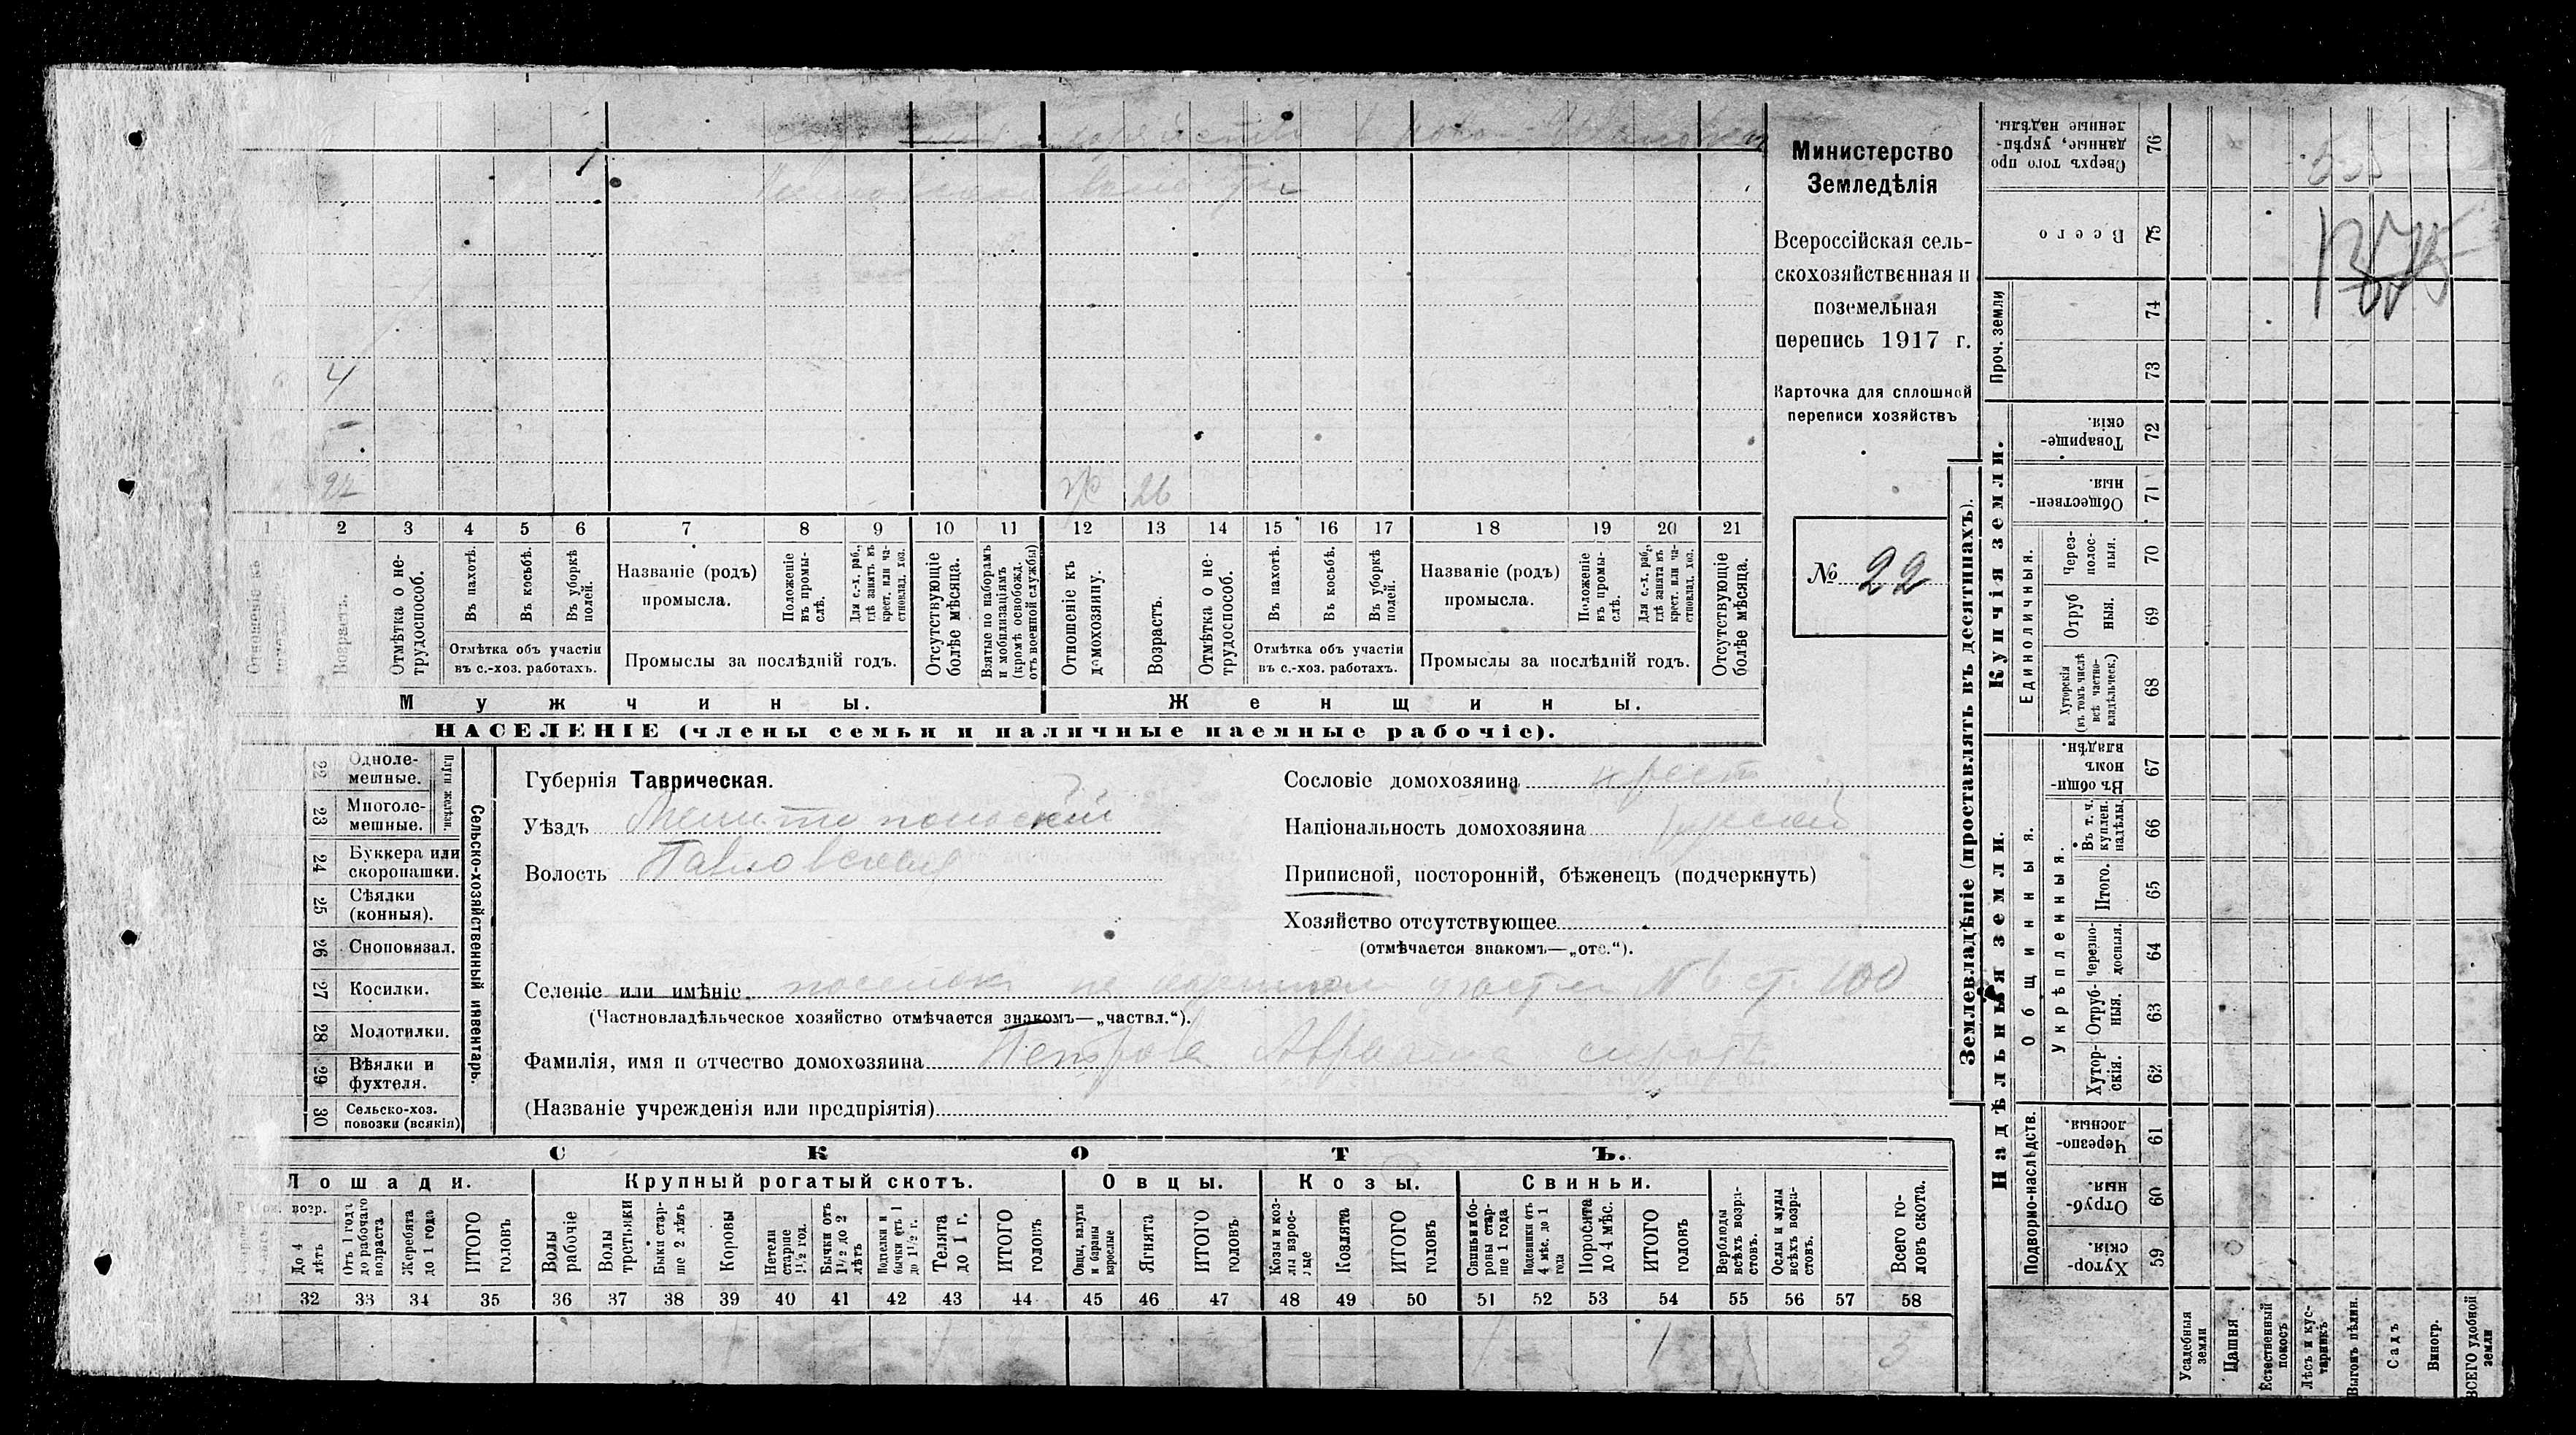 4
92 26
1 2 3 4 5 6 7 8 9 10 11 12 13 14 15 16 17 18 19 20 21
Отношеніе къ
Возрастъ.
Отмѣтка о не-
трудоспособ.
Въ пахотѣ.
Въ косьбѣ.
Въ уборкѣ
полей.
Отмѣтка объ участіи
въ с.-хоз. работахъ.
Названіе (родъ)
промысла.
Положеніе
въ промы-
слѣ.
Для с.-х. раб.,
гдѣ занятъ въ
крест. или ча-
стновлад. хоз.
Промыслы за послѣдній годъ.
Отсутствующіе
болѣе мѣсяца.
Взятые по наборамъ
и мобилизаціямъ
(кромѣ освобожд.
отъ военной службы)
Отношеніе къ
домохозяину.
Возрастъ.
Отмѣтка о не-
трудоспособ.
Въ пахотѣ.
Въ косьбѣ.
Въ уборкѣ
полей.
Отмѣтка объ участіи
въ с.-хоз. работахъ.
Названіе (родъ)
промысла.
Положеніе
въ промы-
слѣ.
Для с.-х. раб.,
гдѣ занята въ
крест. или ча-
стновлад. хоз.
Промыслы за послѣдній годъ.
Отсутствующіе
болѣе мѣсяца.
Мужчины.
Женщины.
НАСЕЛЕНІЕ (члены семьи и наличные наемные рабочіе).
Министерство
Земледѣлія
Всероссійская сель-
скохозяйственная и
поземельная
перепись 1917 г.
Карточка для сплошной
переписи хозяйствъ
№ 22
22 Одноле-
мешные.
23 Многоле-
мешные.
Плуги желѣзн.
24 Буккера или
скоропашки.
25 Сѣялки
(конныя).
26 Сноповязал.
27 Косилки.
28 Молотилки.
29 Вѣялки и
фухтеля.
30 Сельско-хоз.
повозки (всякія)
Сельско-хозяйственный инвентарь.
Губернія Таврическая.
Уѣздъ Мелитопольскій
Волость Павловская
Сословіе домохозяина крест
Національность домохозяина русскій
Приписной, посторонній, бѣженецъ (подчеркнуть)
Хозяйство отсутствующее
(отмѣчается знакомъ—„отс.“).
Селеніе или имѣніе поселокъ на участкѣ № 6 ст. 100
(Частновладѣльческое хозяйство отмѣчается знакомъ—„частвл.“).
Фамилія, имя и отчество домохозяина Петрова
(Названіе учрежденія или предпріятія)
СКОТЪ.
Лошади.
До 4
лѣтъ
Отъ 1 года
до рабочаго
возраста
Жеребята
до 1 года
ИТОГО
головъ
Крупный рогатый скотъ.
Волы
рабочіе
Волы
третьяки
Быки стар-
ше 2 лѣтъ
Коровы
Нетели
старше
1½ год.
Бычки отъ
1½ до 2
лѣтъ
Подтелки и
бычки отъ 1
до 1½ г.
Телята
до 1 г.
ИТОГО
головъ
Овцы.
Овцы, валухи
и бараны
взрослые
Ягнята
ИТОГО
головъ
Козы.
Козы и коз-
лы взрос-
лые
Козлята
ИТОГО
головъ
Свиньи.
Свиньи и бо-
ровы стар-
ше 1 года
Подсвинки отъ
4 мѣс. до 1
года
Поросята
до 4 мѣс.
ИТОГО
головъ
Верблюды
всѣхъ возра-
стовъ.
Ослы и мулы
всѣхъ возра-
стовъ.
Всего го-
ловъ скота.
31 32 33 34 35 36 37 38 39 40 41 42 43 44 45 46 47 48 49 50 51 52 53 54 55 56 57 58
1 1 3
Землевладѣніе (проставлять въ десятинахъ).
Купчія земли.
Надѣльныя земли.
Сверхъ того про
данные, укрѣп-
ленные надѣлы.
76
Всего
75
Проч. земли
74
73
Товарище-
скія
72
Обществен-
ныя
71
Единоличныя.
Через-
полос-
ныя.
70
Отруб
ныя.
69
Хуторскія
(въ томъ числѣ
всѣ частно-
владѣльческ.)
68
Общинныя.
Въ общи-
номъ
владѣн.
67
Укрѣпленныя.
Въ т. ч.
куплен.
надѣлы.
66
Итого.
65
Черезпо-
лосныя.
64
Отруб-
ныя.
63
Хутор-
скія.
62
Подворно-наслѣдств.
Черезпо-
лосныя.
61
Отруб-
ныя.
60
Хутор-
скія.
59
Усадебныя
земли
Пашня
Естественный
покосъ
Лѣсъ и кус-
тарникъ
Выгонъ цѣлин.
Садъ
Виногр.
ВСЕГО удобной
земли